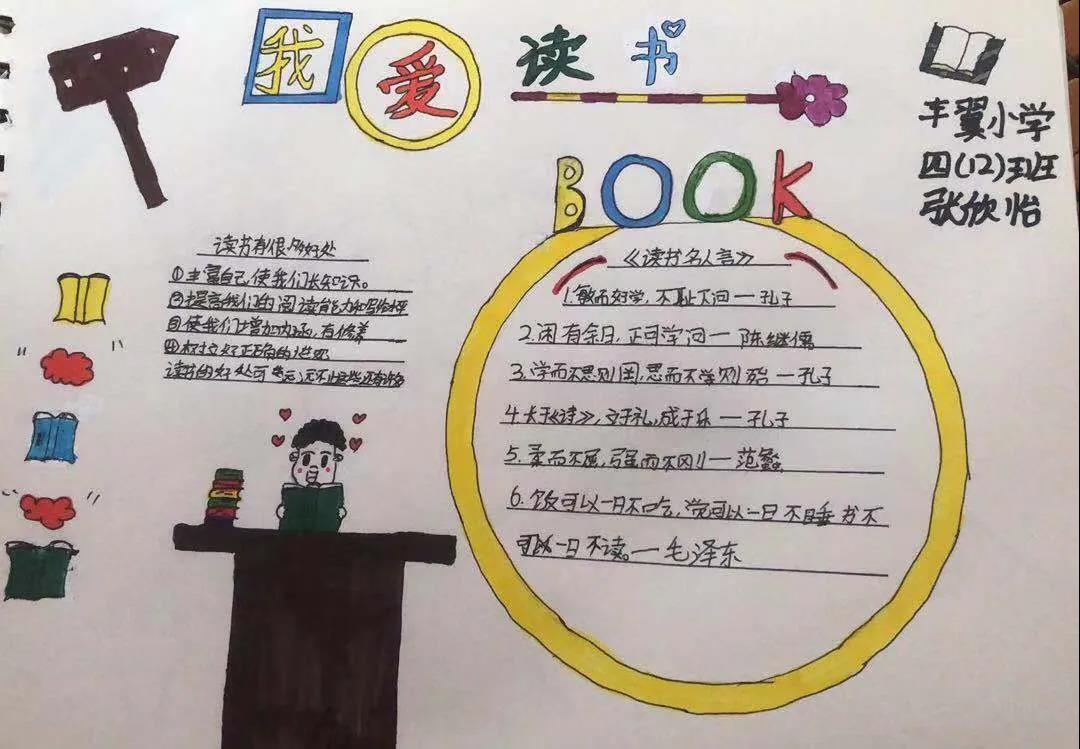 我爱读书
丰翼小学
四(12)班
张欣怡
BOOK
读书有很多好处
①丰富自己,使我们长知识。
②提高我们的阅读能力和写作水平
③使我们增加内涵,有修养
④树立好正确的
读书的好处可远远不止这些还有许多
《读书名人言》
1.敏而好学,不耻下问一孔子
2.闲有余日,正可学问一陈继儒
3.学而不思则罔,思而不学则殆一孔子
4.长于《诗》,立于礼,成于乐一孔子
5.柔而不屈,强而不刚一范蠡
6.饭可以一日不吃,觉可以一日不睡书不
可以一日不读。一毛泽东